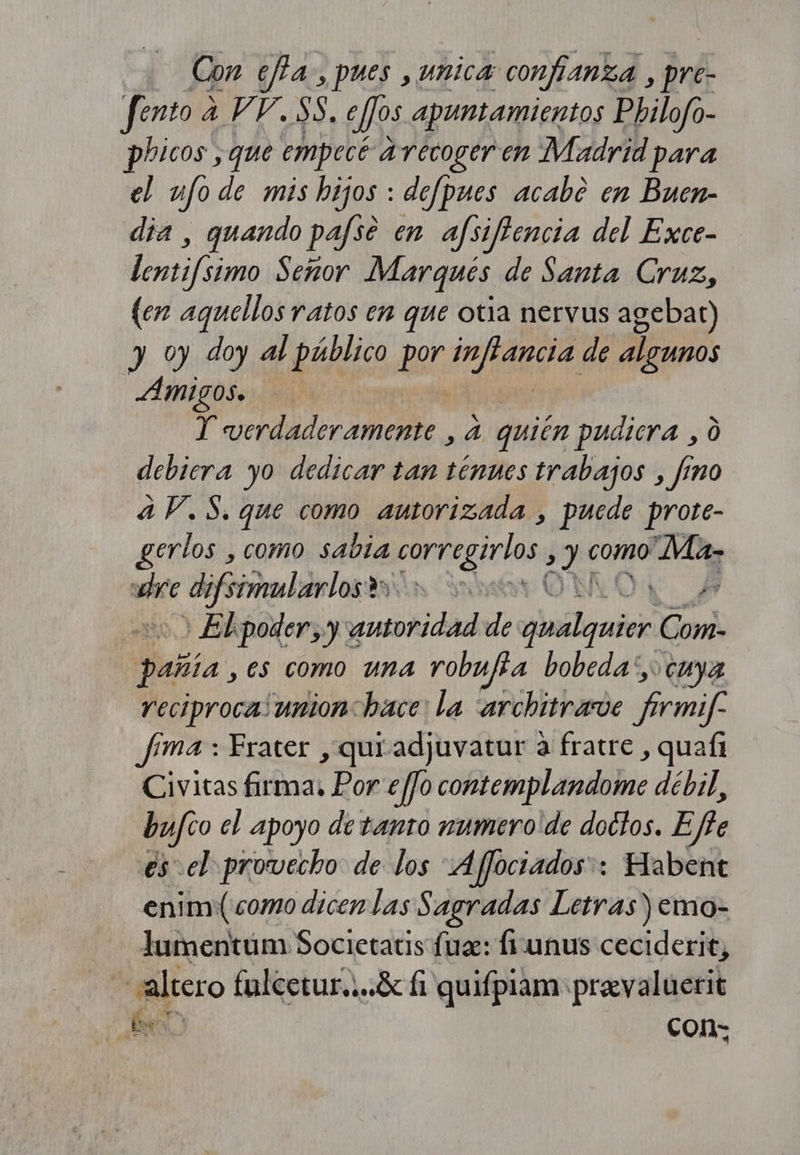 Con eſta , pues , unica confianza , pre-
ſento à VV. SS. eſſos apuntamientos Philoſo-
phicos , que empecé à recoger en Madrid para
el uſo de mis hijos : deſpues acabè en Buen-
dia , quando paſsè en aſsiſtencia del Exce-
lentiſsimo Señor Marqués de Santa Cruz,
(en aquellos ratos en que otia nervus agebat)
y oy doy al público por inſtancia de algunos
Amigos.
Y verdaderamente , à quién pudiera , ò
debiera yo dedicar tan ténues trabajos , ſino
à V. S. que como autorizada , puede prote-
gerlos , como sabia corregirlos , y como Ma-
dre diſsimularlos?
El poder, y autoridad de qualquier Com-
pañia , es como una robuſta bobeda , cuya
reciproca union hace la architrave firmiſ-
ſima : Frater , qui adjuvatur à fratre , quaſi
Civitas firma. Por eſſo contemplandome débil,
buſco el apoyo de tanto numero de doctos. Eſte
es el provecho de los Aſſociados : Habent
enim ( como dicen las Sagradas Letras ) emo-
lumentum Societatis ſuæ: ſi unus ceciderit,
altero fulcetur...& ſi quiſpiam prævaluerit
con-